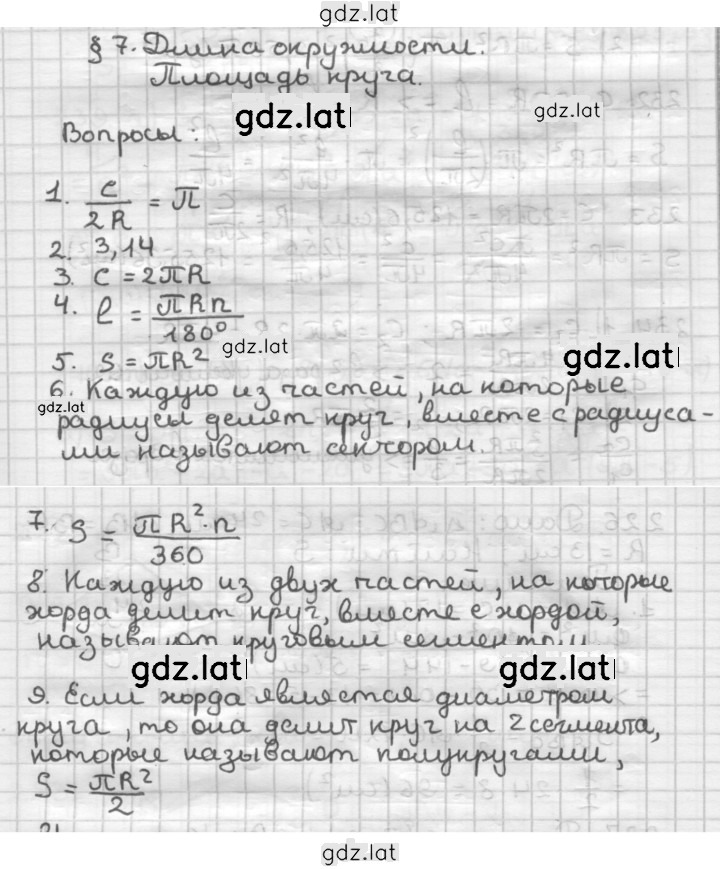 gdz.lat
§ 7. Длина окружности.
Площадь круга.
gdz.lat
gdz.lat
Вопросы:
1. C/2R = π
2. 3,14
3. C = 2πR
4. ℓ = πRn/180°
gdz.lat
5. S = πR²
gdz.lat
6. Каждую из частей, на которые
gdz.lat
радиусы делят круг, вместе с радиуса-
ми называют сектором.
7. S = πR²·n/360
8. Каждую из двух частей, на которые
хорда делит круг, вместе с хордой,
называют круговым сегментом
gdz.lat
gdz.lat
9. Если хорда является диаметром
круга, то она делит круг на 2 сегмента,
которые называют полукругами,
S = πR²/2
gdz.lat